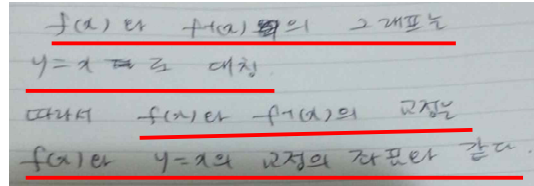 f(x)와 f⁻¹(x)의 그래프는
y=x로 대칭.
따라서 f(x)와 f⁻¹(x)의 교점은
f(x)와 y=x의 교점의 좌표와 같다.